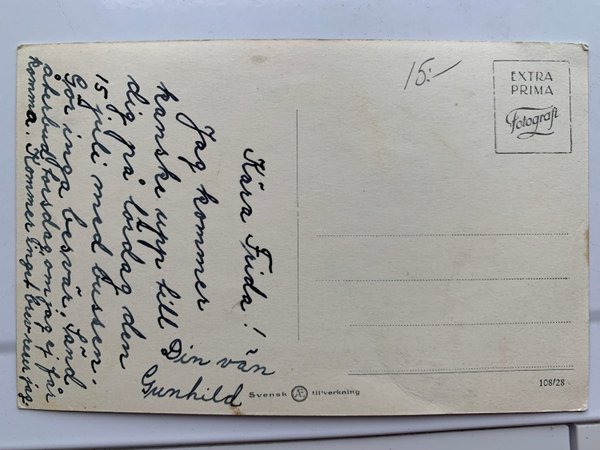 Kära Frida!
Jag kommer
kanske upp till
dig på lördag den
15 juli med bussen.
Gör inga besvär. Sänd
återbud torsdag om jag ej får
komma. Kommer inget brev reser jag.
Din vän
Gunhild
15:-
EXTRA
PRIMA
Fotografi
Svensk Æ tillverkning
108/28